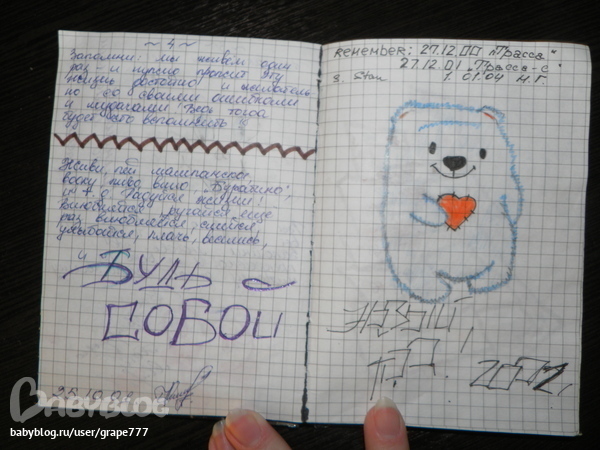 ~ 4 ~
Запомни: мы живем один
раз - и нужно прожить эту
жизнь достойно! и желатель
но со своими ошибками
и
будет что вспомнить
Живи, пей шампанское,
водку пиво вино, "Буратино",
и т.д. Радуйся жизни!
Влюбляйся, ругайся, еще
раз влюбляйся, смейся,
улыбайся, плачь, веселись,
БУДЬ
СОБОЙ
Remember: 27.12.00 "Трасса"
27.12.01 "Трасса-с"
S. Stan 1.01.04 Н.Г.
НОВЫЙ
ГОД!
2002.
BABYBLOG
babyblog.ru/user/grape777